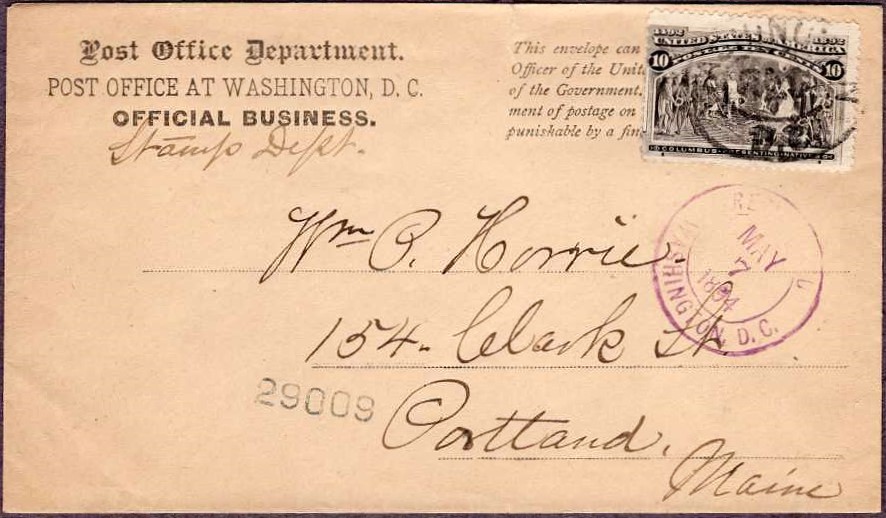 Post Office Department.
POST OFFICE AT WASHINGTON, D. C.
OFFICIAL BUSINESS.
Stamp Dept.
This envelope can
Officer of the Unit
of the Government.
ment of postage on
punishable by a fin
1492 1892
UNITED STATES OF AMERICA
POSTAGE TEN CENTS
10 10
COLUMBUS PRESENTING NATIVES
RE
MAY
7
1894
WASHINGTON, D. C.
Wm C. Horrie.
154. Clark St.
29009
Portland,
Maine